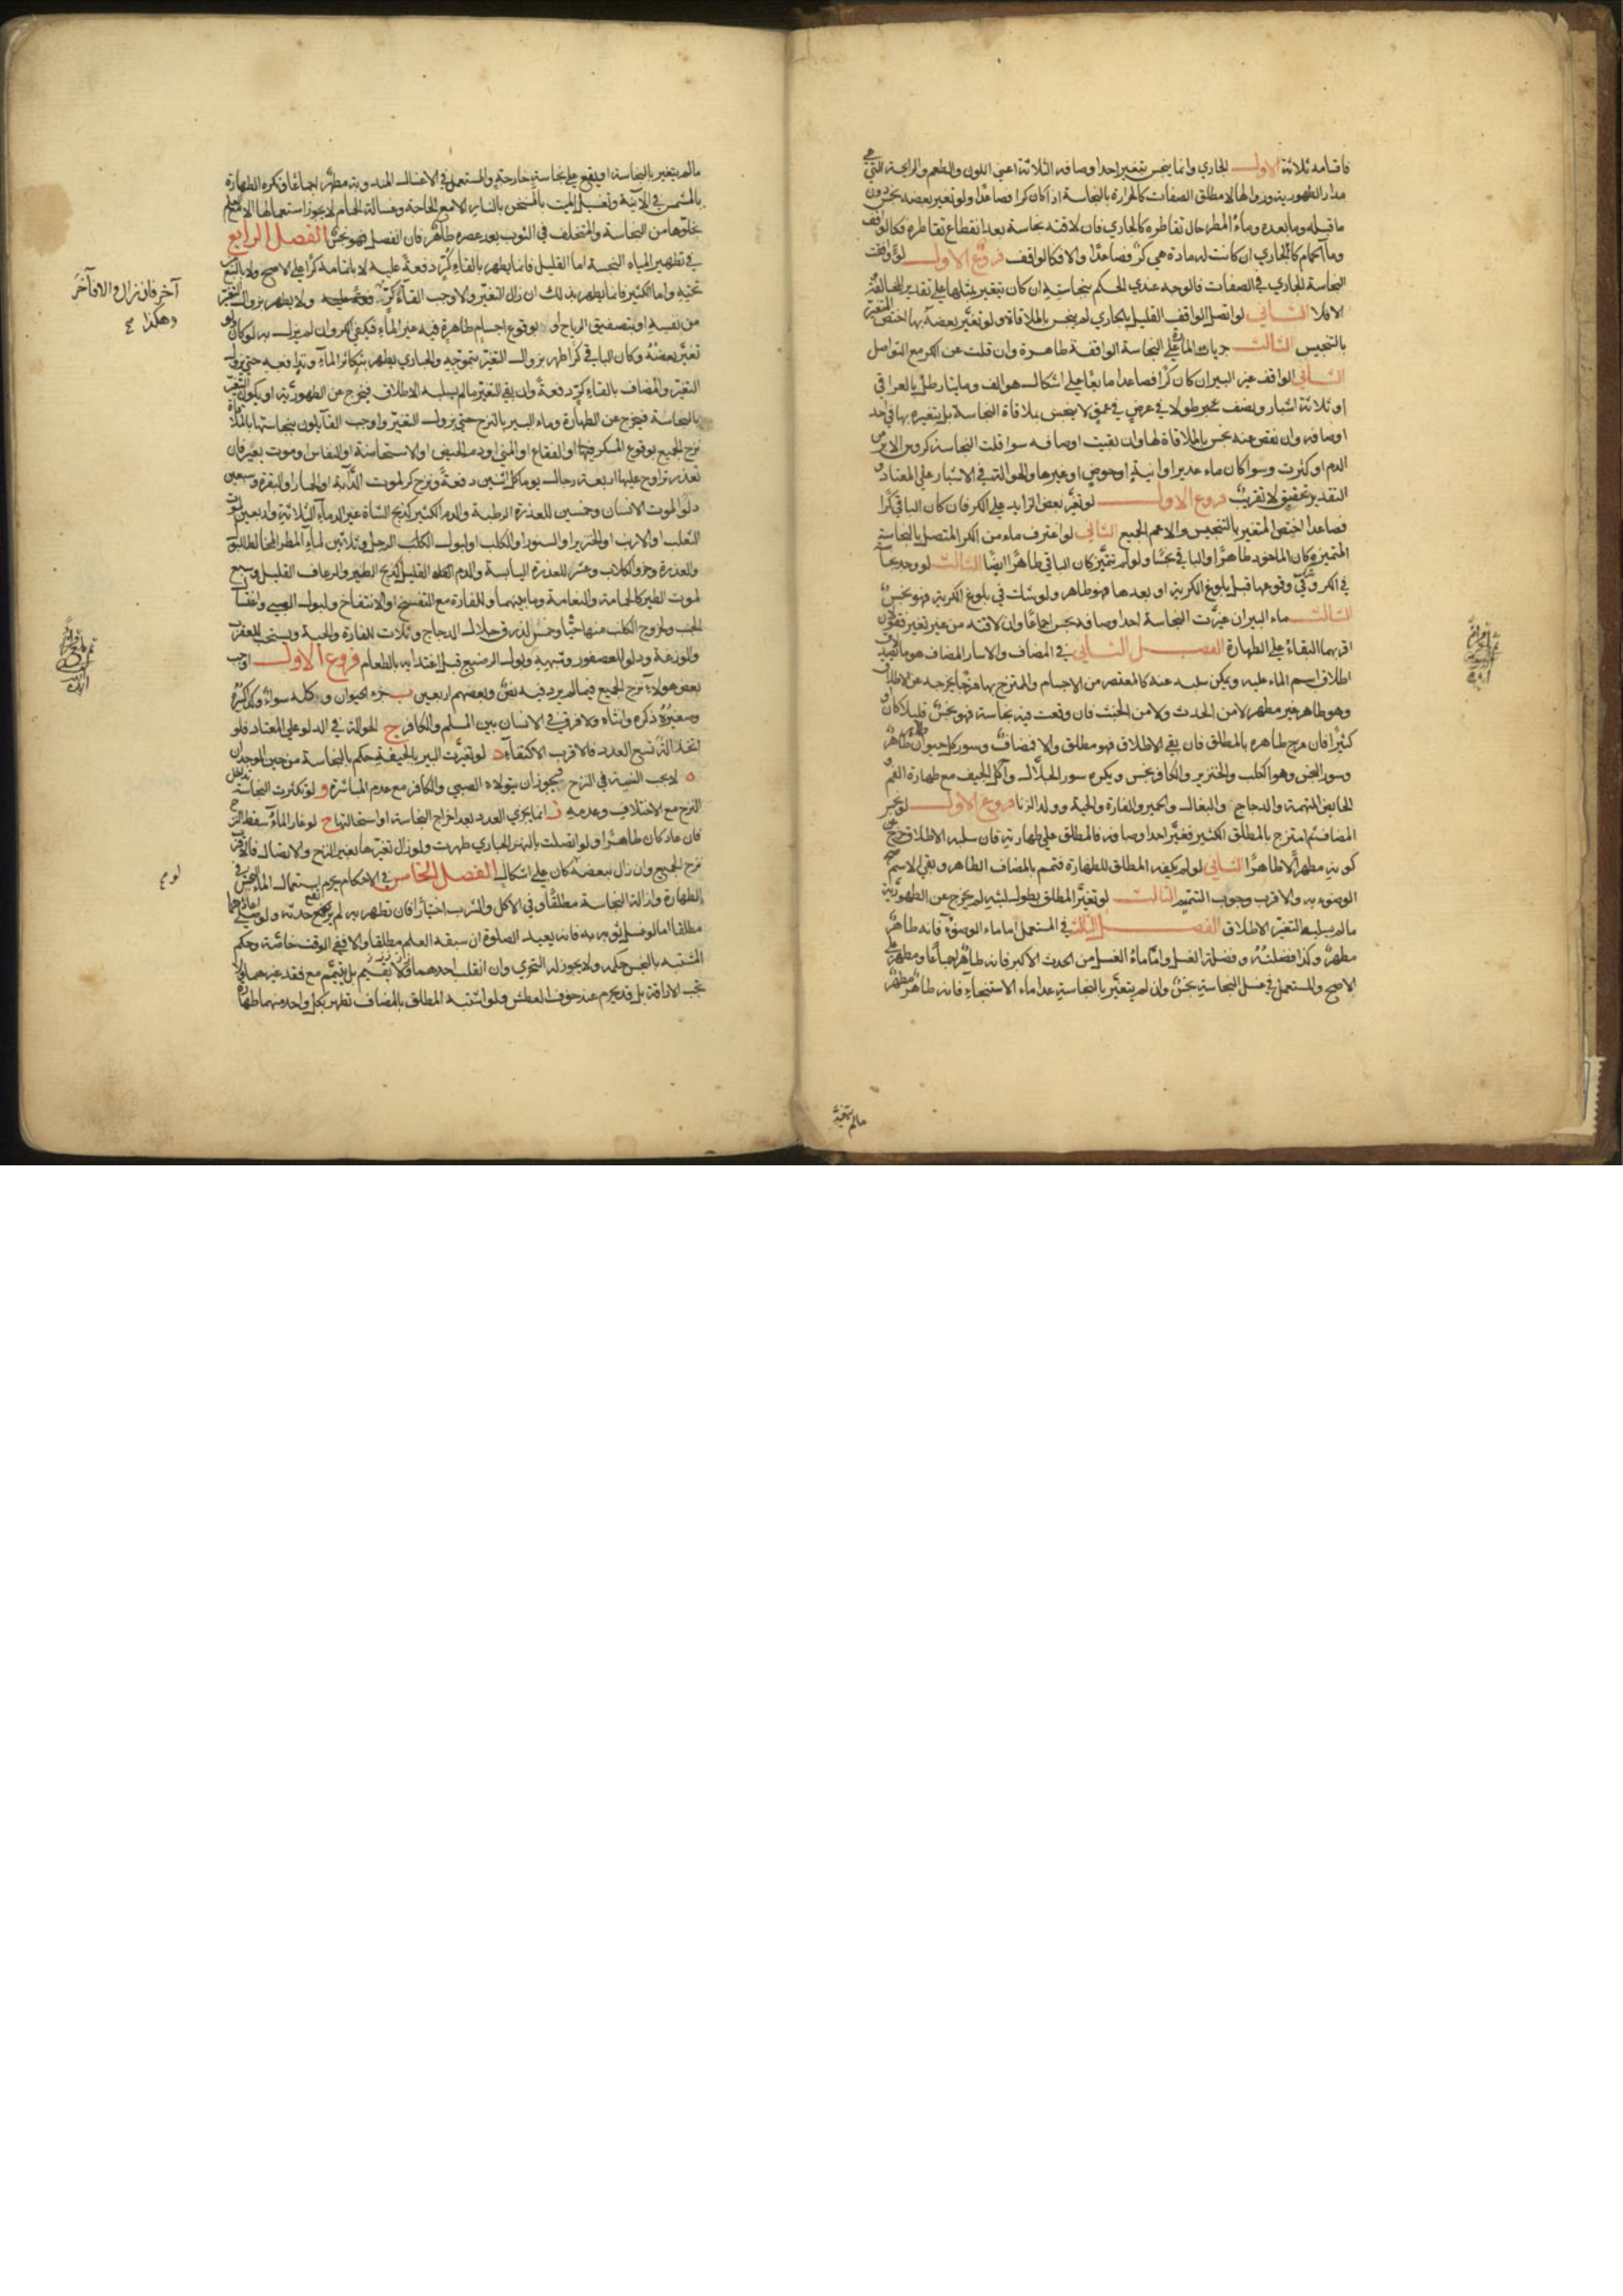 فاقسامه ثلاثة الاول الجاري وانما ينجس بتغير احد اوصافه الثلاثة اعني اللون والطعم والرايحة التي هي
مدار الطهورية وزوالها لا مطلق الصفات كالحرارة بالنجاسة اذا كان كرا فصاعدا ولو تغير بعضه نجس دون
ما قبله وما بعده وماء المطر حال تقاطره كالجاري فان لاقته نجاسة بعد انقطاع تقاطره فكالواقف
وماء الحمام كالجاري ان كانت له مادة هي كر فصاعدا والا فكالواقف فروع الاول لو وافقت
النجاسة الجاري في الصفات فالوجه عندي الحكم بنجاسته ان كان يتغير بمثلها على تقدير المخالفة
الا فلا الثاني لو اتصل الواقف القليل بالجاري لم ينجس بالملاقاة ولو تغير بعضه بها اختص المتغير
بالتنجيس الثالث جريات الماء على النجاسة الواقفة طاهرة وان قلت عن الكر مع التواصل
الثاني الواقف غير البير ان كان كرا فصاعدا مايعا على اشكال هو الف ومايتا رطل بالعراقي
او ثلاثة اشبار ونصف طولا في عرض في عمق لا ينجس بملاقاة النجاسة بل بتغيره بها في احد
اوصافه وان نقص عنه نجس بالملاقاة لها وان بقيت اوصافه سوا قلت النجاسة كروس الابر من
الدم او كثرت وسوا كان ماء غدير او انية او حوض او غيرها والحوالة في الاشبار على المعتاد و
التقدير تحقيق لا تقريب فروع الاول لو تغير بعض الزايد على الكر فان كان الباقي كرا
فصاعدا اختص المتغير بالتنجيس والا عم الجميع الثاني لو اغترف ماء من الكر المتصل بالنجاسة
المتميزة كان الماخوذ طاهرا والباقي نجسا ولو لم تتميز كان الباقي طاهرا ايضا الثالث لو وجد نجاسة
في الكر وشك في وقوعها قبل بلوغ الكرية او بعدها فهو طاهر ولو شك في بلوغ الكرية فهو نجس
الثالث ماء البير ان غيرت النجاسة احد اوصافه نجس اجماعا وان لاقته من غير تغير فقولان
اقربهما البقاء على الطهارة الفصل الثاني في المضاف والاسار المضاف هو ما لا يصدق
اطلاق اسم الماء عليه ويمكن سلبه عنه كالمعتصر من الاجسام والممتزج بها مزجا يخرجه عن الاطلاق
وهو طاهر غير مطهر لا من الحدث ولا من الخبث فان وقعت فيه نجاسة فهو نجس قليلا كان او
كثيرا فان مزج طاهره بالمطلق فان بقي الاطلاق فهو مطلق والا فمضاف وسور كل حيوان طاهر طاهر
وسور النجس وهو الكلب والخنزير والكافر نجس ويكره سور الجلال واكل الجيف مع طهارة الفم و
الحايض المتهمة والدجاج والبغال والحمير والفارة والحية وولد الزنا فروع الاول لو نجس
المضاف ثم امتزج بالمطلق الكثير فغير احد اوصافه فالمطلق على طهارته فان سلبه الاطلاق خرج عن
كونه مطهرا لا طاهرا الثاني لو لم يكفه المطلق للطهارة فتمم بالمضاف الطاهر وبقي الاسم صح
الوضوء به والاقرب وجوب التتميم الثالث لو تغير المطلق بطول لبثه لم يخرج عن الطهورية
ما لم يسلبه التغير الاطلاق الفصل الثالث في المستعمل اما ماء الوضوء فانه طاهر
مطهر وكذا فضلته وفضلة الغسل واما ماء الغسل من الحدث الاكبر فانه طاهر اجماعا ومطهر على
الاصح والمستعمل في غسل النجاسة نجس وان لم يتغير بالنجاسة عدا ماء الاستنجاء فانه طاهر مطهر
مالم يتغير
مالم يتغير بالنجاسة او يقع على نجاسة خارجة والمستعمل في الاغسال المندوبة مطهر اجماعا وتكره الطهارة
بالمشمس في الآنية وتغسيل الميت بالمسخن بالنار الا مع الحاجة وغسالة الحمام لا يجوز استعمالها الا مع العلم
بخلوها من النجاسة والمتخلف في الثوب بعد عصره طاهر فان انفصل فهو نجس الفصل الرابع
في تطهير المياه النجسة اما القليل فانما يطهر بالقاء كر دفعة عليه لا باتمامه كرا على الاصح ولا بالنبع من
تحته واما الكثير فانما يطهر بذلك ان زال التغير والا وجب القاء كر ولا يطهر بزوال التغير
من نفسه او بتصفيق الرياح او بوقوع اجسام طاهرة فيه غير الماء فيكفي الكر وان لم يزل به لو كان ولو
تغير بعضه وكان الباقي كرا طهر بزوال التغير بتموجه والجاري يطهر بتكاثر الماء وتدافعه حتى يزول
التغير والمضاف بالقاء كر دفعة وان بقي التغير ما لم يسلبه الاطلاق فيخرج عن الطهورية او يكون التغير
بالنجاسة فيخرج عن الطهارة وماء البير بالنزح حتى يزول التغير واوجب القايلون بنجاستها بالملاقاة
نزح الجميع بوقوع المسكر فيها او الفقاع او المني او دم الحيض او الاستحاضة او النفاس او موت بعير فان
تعذر تراوح عليها اربعة رجال يوما كل اثنين دفعة ونزح كر لموت الدابة او الحمار او البقرة وسبعين
دلوا لموت الانسان وخمسين للعذرة الرطبة والدم الكثير كذبح الشاة غير الدماء الثلاثة واربعين لموت
الثعلب او الارنب او الخنزير او السنور او الكلب او لبول الرجل وثلاثين لماء المطر المخالط للبول
والعذرة وخرو الكلاب وعشر للعذرة اليابسة والدم القليل كذبح الطير والرعاف القليل وسبع
لموت الطير كالحمامة والنعامة وما بينهما وللفارة مع التفسخ او الانتفاخ ولبول الصبي واغتسال
الجنب ولخروج الكلب منها حيا وخمس لذرق جلال الدجاج وثلاث للفارة والحية ويستحب للعقرب
والوزغة ودلو للعصفور وشبهه وبول الرضيع قبل اغتذايه بالطعام فروع الاول اوجب
بعض هولاء نزح الجميع فيما لم يرد فيه نص وبعضهم اربعين ب جزء الحيوان وكله سواء وكذا كبيره
وصغيره ذكره وانثاه ولا فرق في الانسان بين المسلم والكافر ج الحوالة في الدلو على المعتاد فلو
اتخذ آلة تسع العدد فالاقرب الاكتفاء د لو تغيرت البير بالجيفة حكم بالنجاسة من حين الوجدان
ه لا يجب النية في النزح فيجوز ان يتولاه الصبي والكافر مع عدم المباشرة و لو تكثرت النجاسة تداخل
النزح مع الاختلاف وعدمه ز انما يجزي العدد بعد اخراج النجاسة او استحالتها ح لو غار الماء سقط النزح
فان عاد كان طاهرا ولو اتصلت بالنهر الجاري طهرت ولو زال تغيرها بغير النزح والاتصال فالاقرب
نزح الجميع وان زال ببعضه لو كان على اشكال الفصل الخامس في الاحكام يحرم استعمال الماء النجس في
الطهارة وازالة النجاسة مطلقا وفي الاكل والشرب اختيارا فان تطهر به لم يرتفع حدثه ولو صلى اعادهما
مطلقا اما لو غسل ثوبه به فانه يعيد الصلوة ان سبقه العلم مطلقا والا ففي الوقت خاصة وحكم
المشتبه بالنجس حكمه ولا يجوز له التحري وان انقلب احدهما بل يتيمم مع فقد غيرهما ولا
تجب الاراقة بل قد يحرم عند خوف العطش ولو اشتبه المطلق بالمضاف تطهر بكل واحد منهما طهارة
آخر فان زال والا فآخر
وهكذا